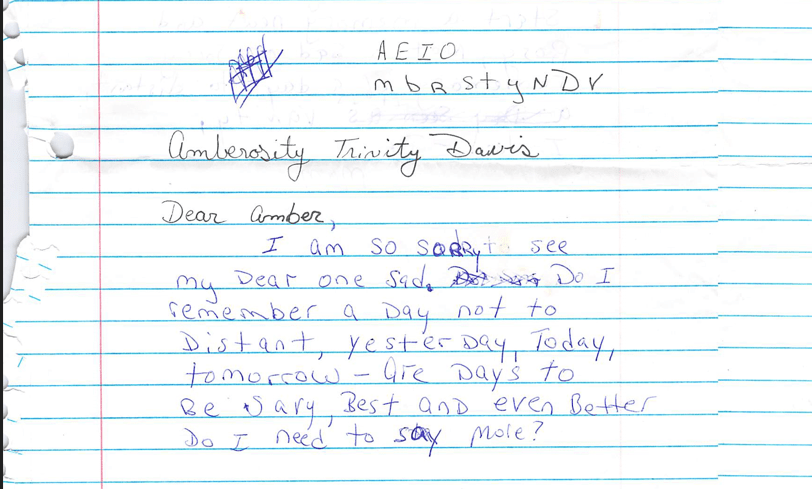 A E I O
m b R s t y N D V
Amberosity Trinity Davis
Dear Amber,
I am so sorry t see
my Dear one sad. Do I
remember a Day not to
Distant, yesterday, Today,
tomorrow – are Days to
Be , Best and even Better
Do I need to say more?